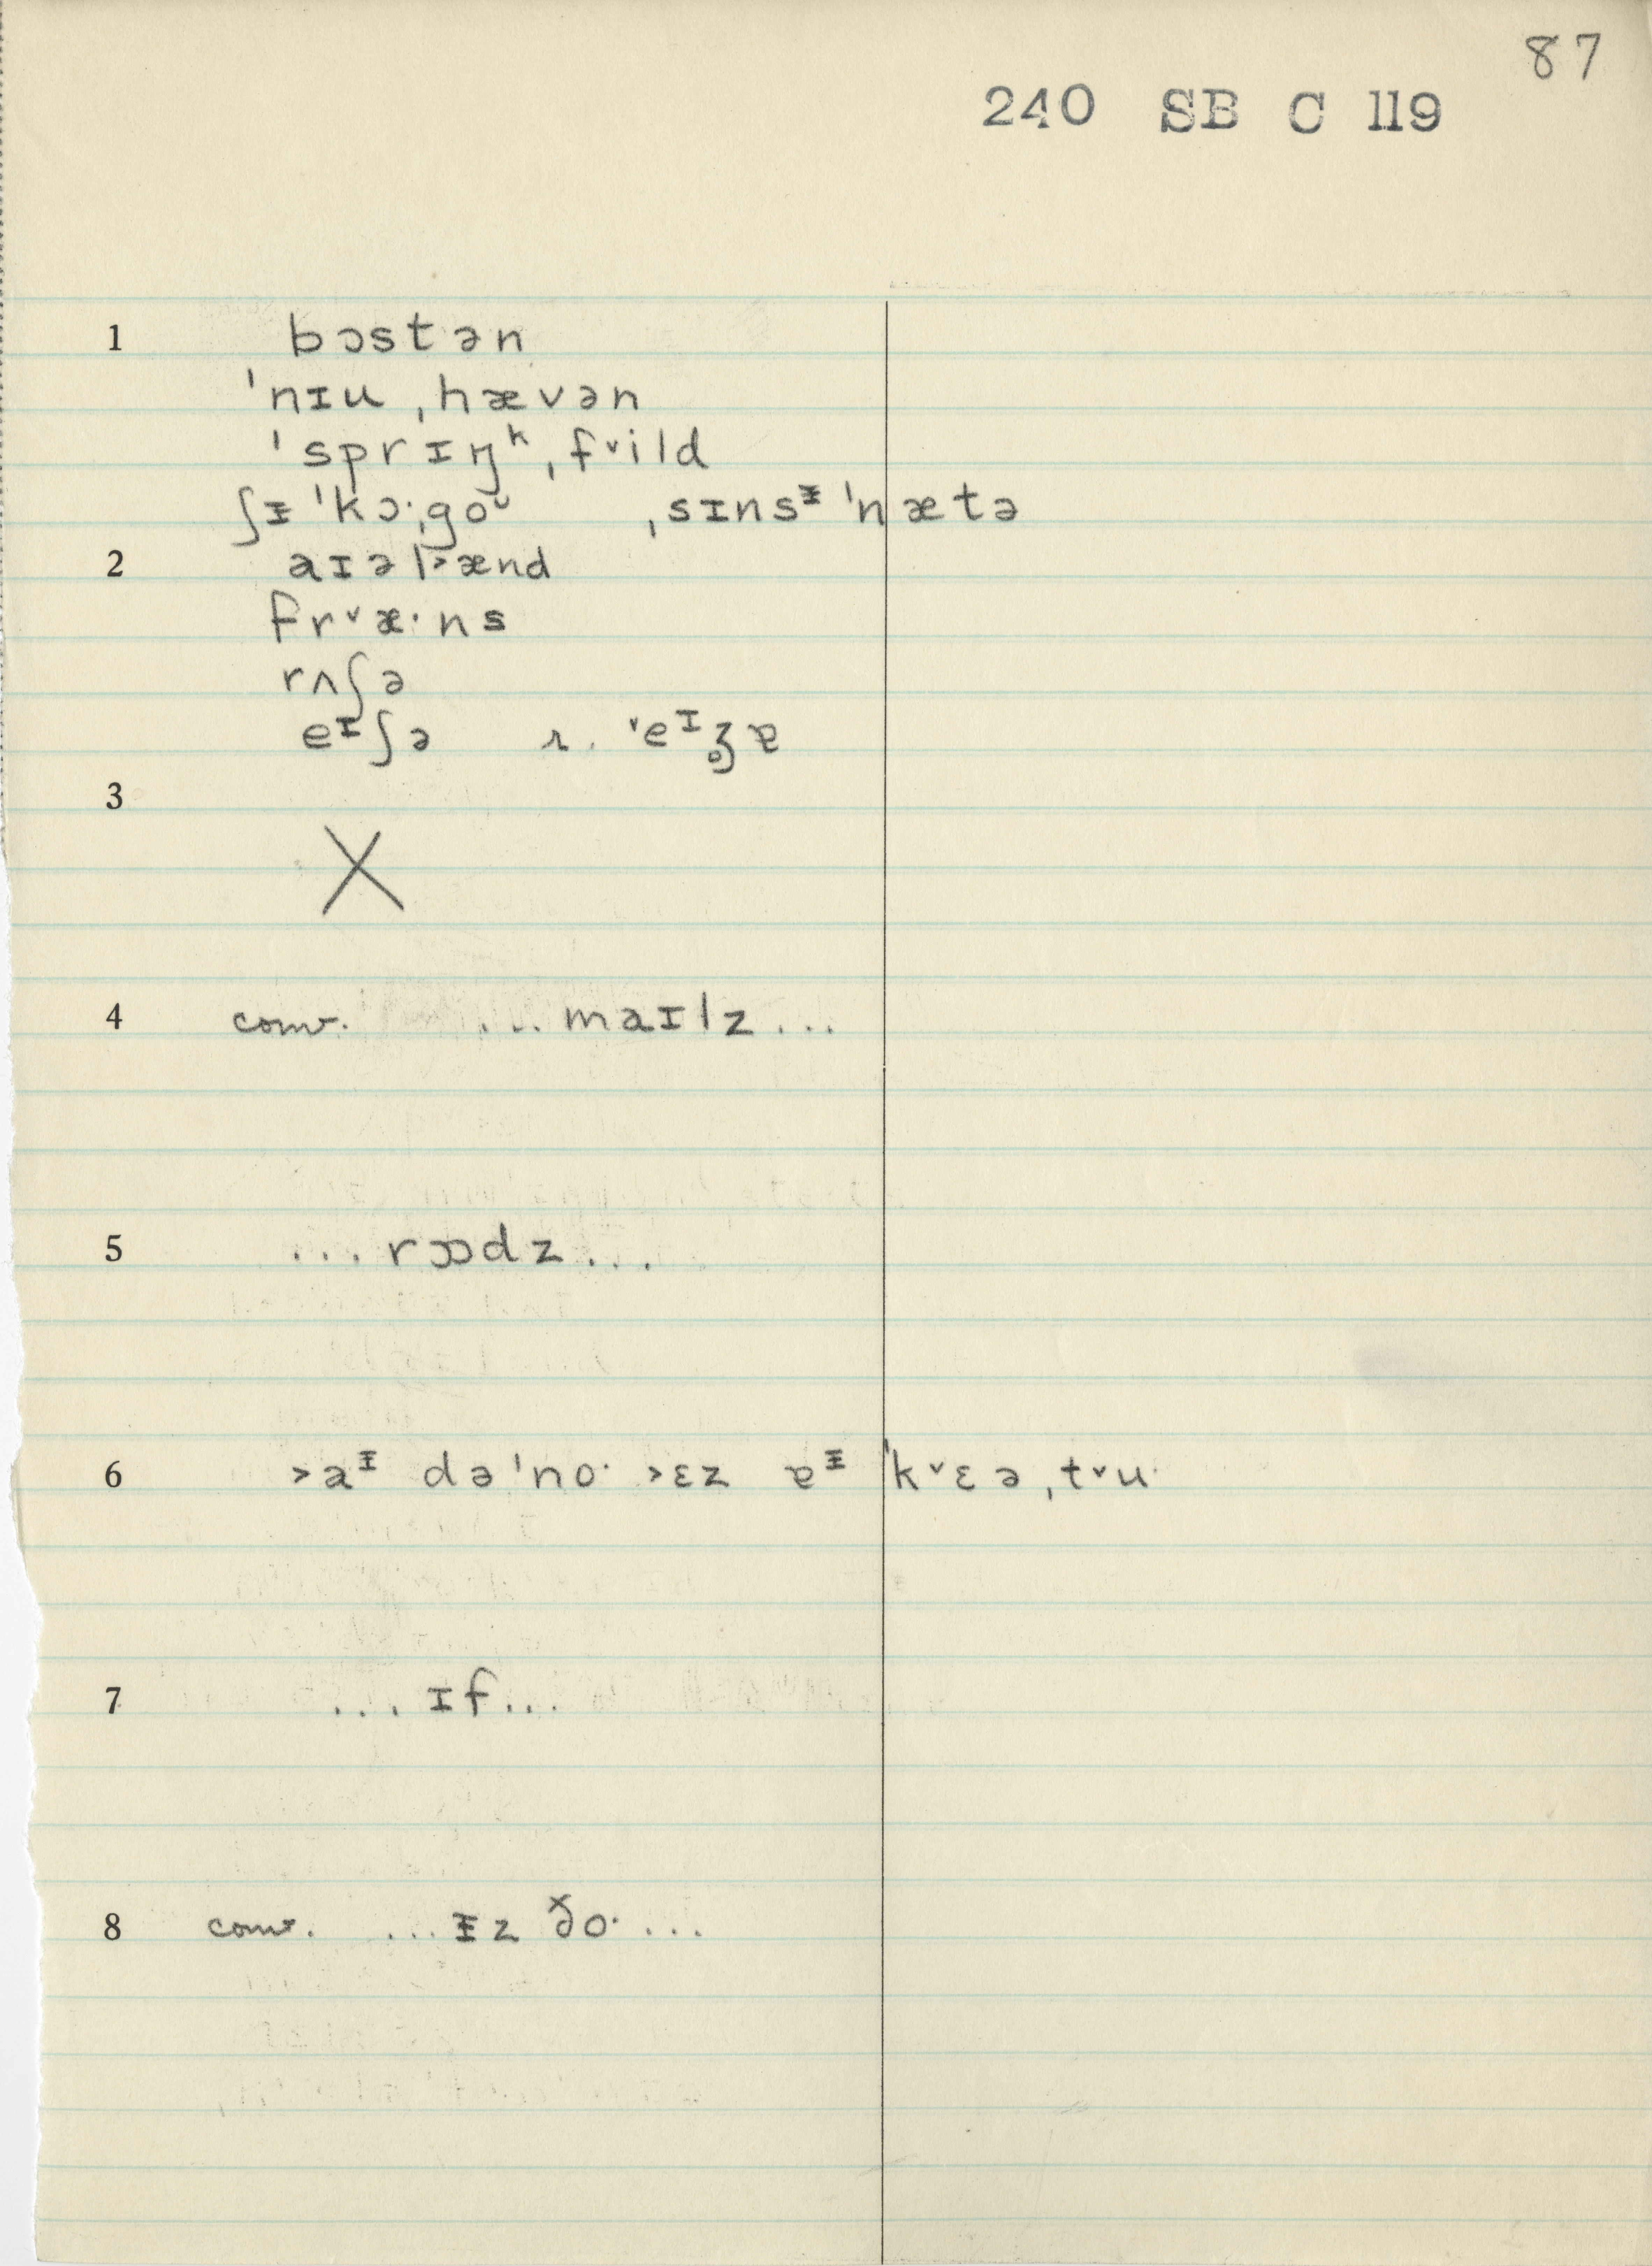 87
240 SB C 119
1 bɔstən
ˈnɪu ˌhævən
ˈsprɪŋᵏ ˌf˅ild
ʃᵻ ˈkɔ·ˌgoᶷ ˌsɪnsᵻ ˈnætə
2 aɪəl˃ænd
fr˅æ·ns
rʌʃə
eᶦʃə r. ˅eᶦʒ̥ɐ
3
X
4 conv. ...maɪlz...
5 ...rɔɒdz...
6 ˃aᵻ dəˈno· ˃ɛz ɐᵻ ˈk˅ɛə ˌt˅u·
7 ...ɪf...
8 conv. ...ᵻz ð̆o·...